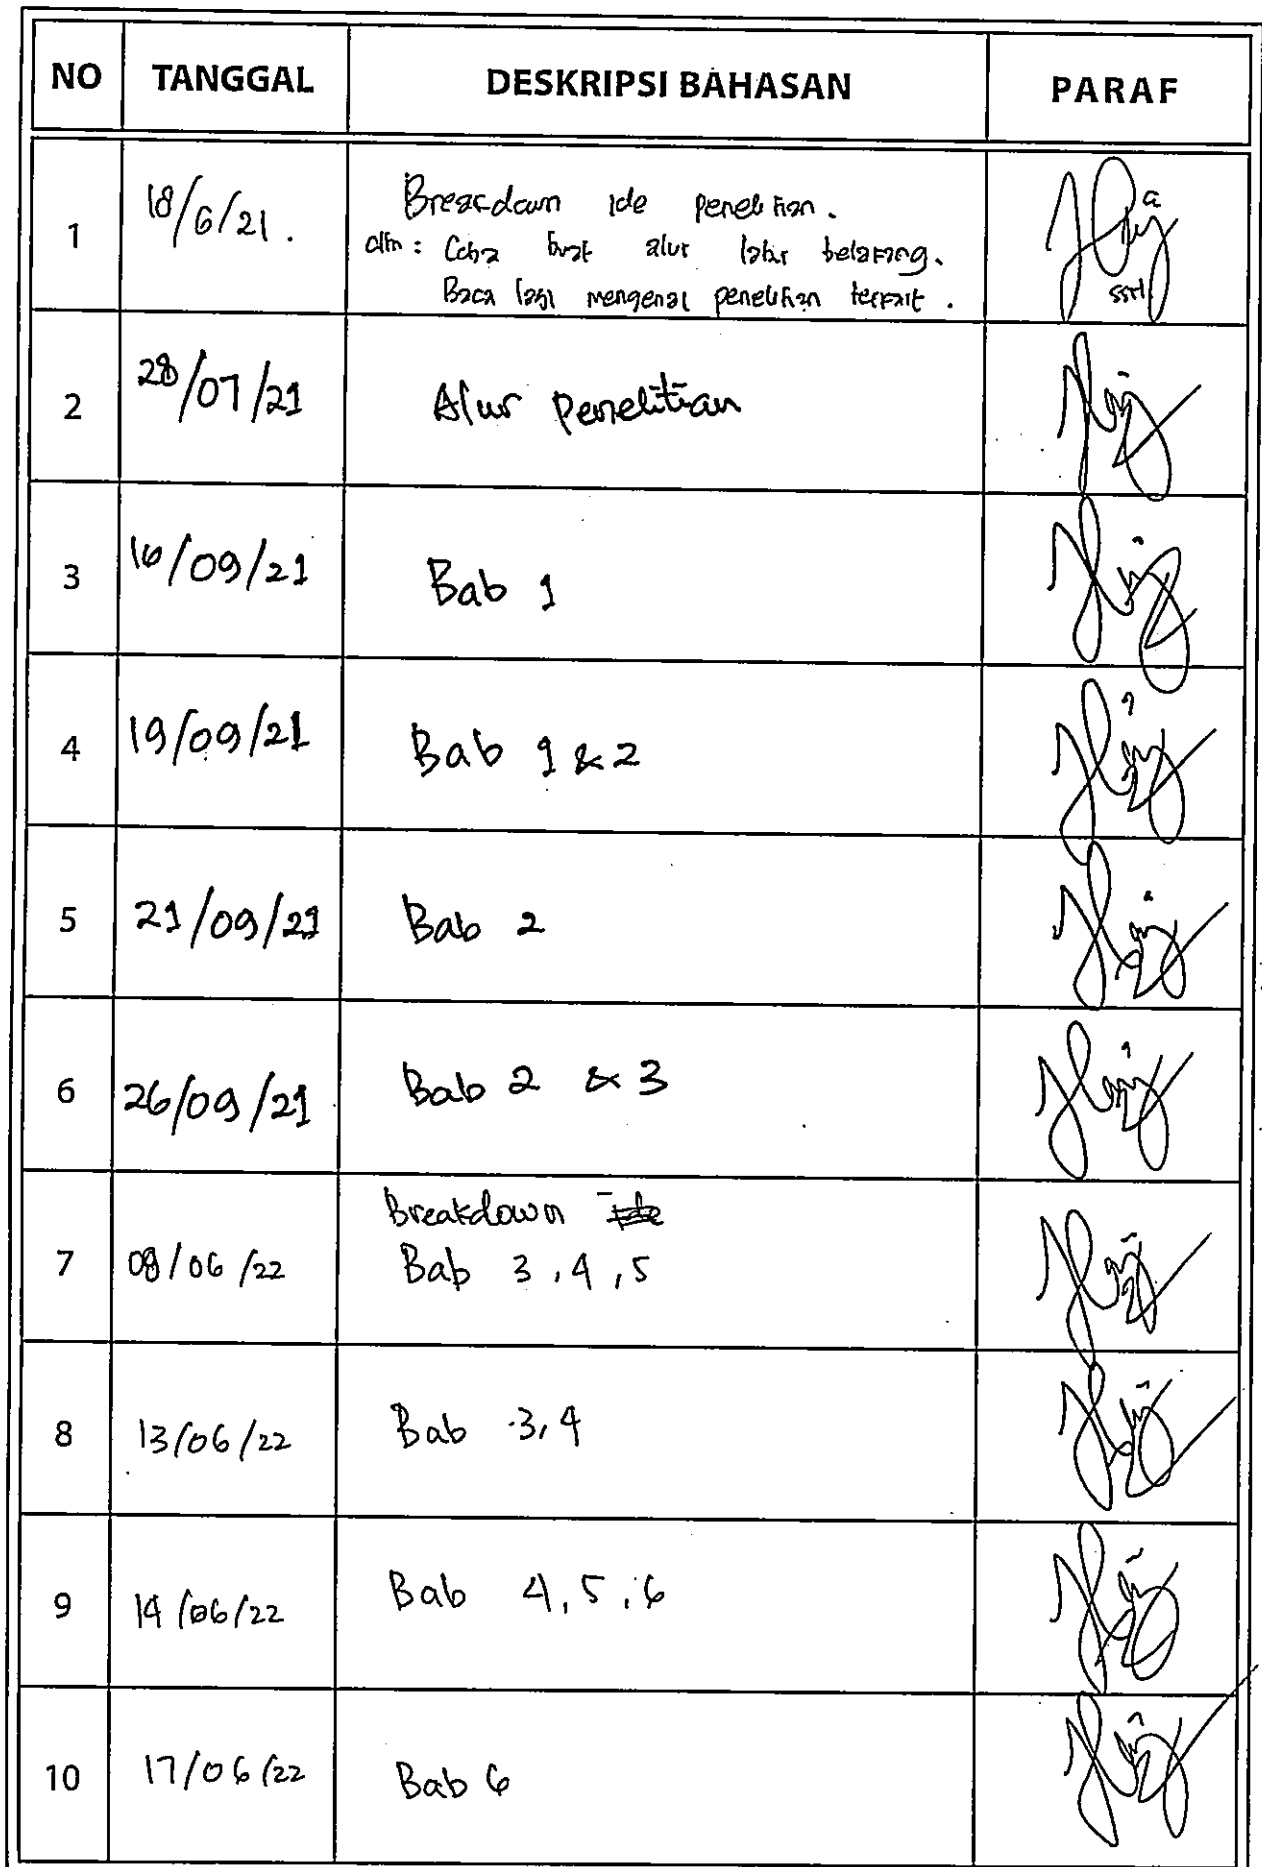 NO TANGGAL DESKRIPSI BAHASAN PARAF
1 18/6/21. Breakdown ide penelitian.
Coba buat alur latar belakang.
Baca lagi mengenai penelitian terkait.
2 28/07/21 Alur Penelitian
3 16/09/21 Bab 1
4 19/09/21 Bab 1 & 2
5 21/09/21 Bab 2
6 26/09/21 Bab 2 & 3
Breakdown
7 08/06/22 Bab 3, 4, 5
8 13/06/22 Bab 3, 4
9 14/06/22 Bab 4, 5, 6
10 17/06/22 Bab 6